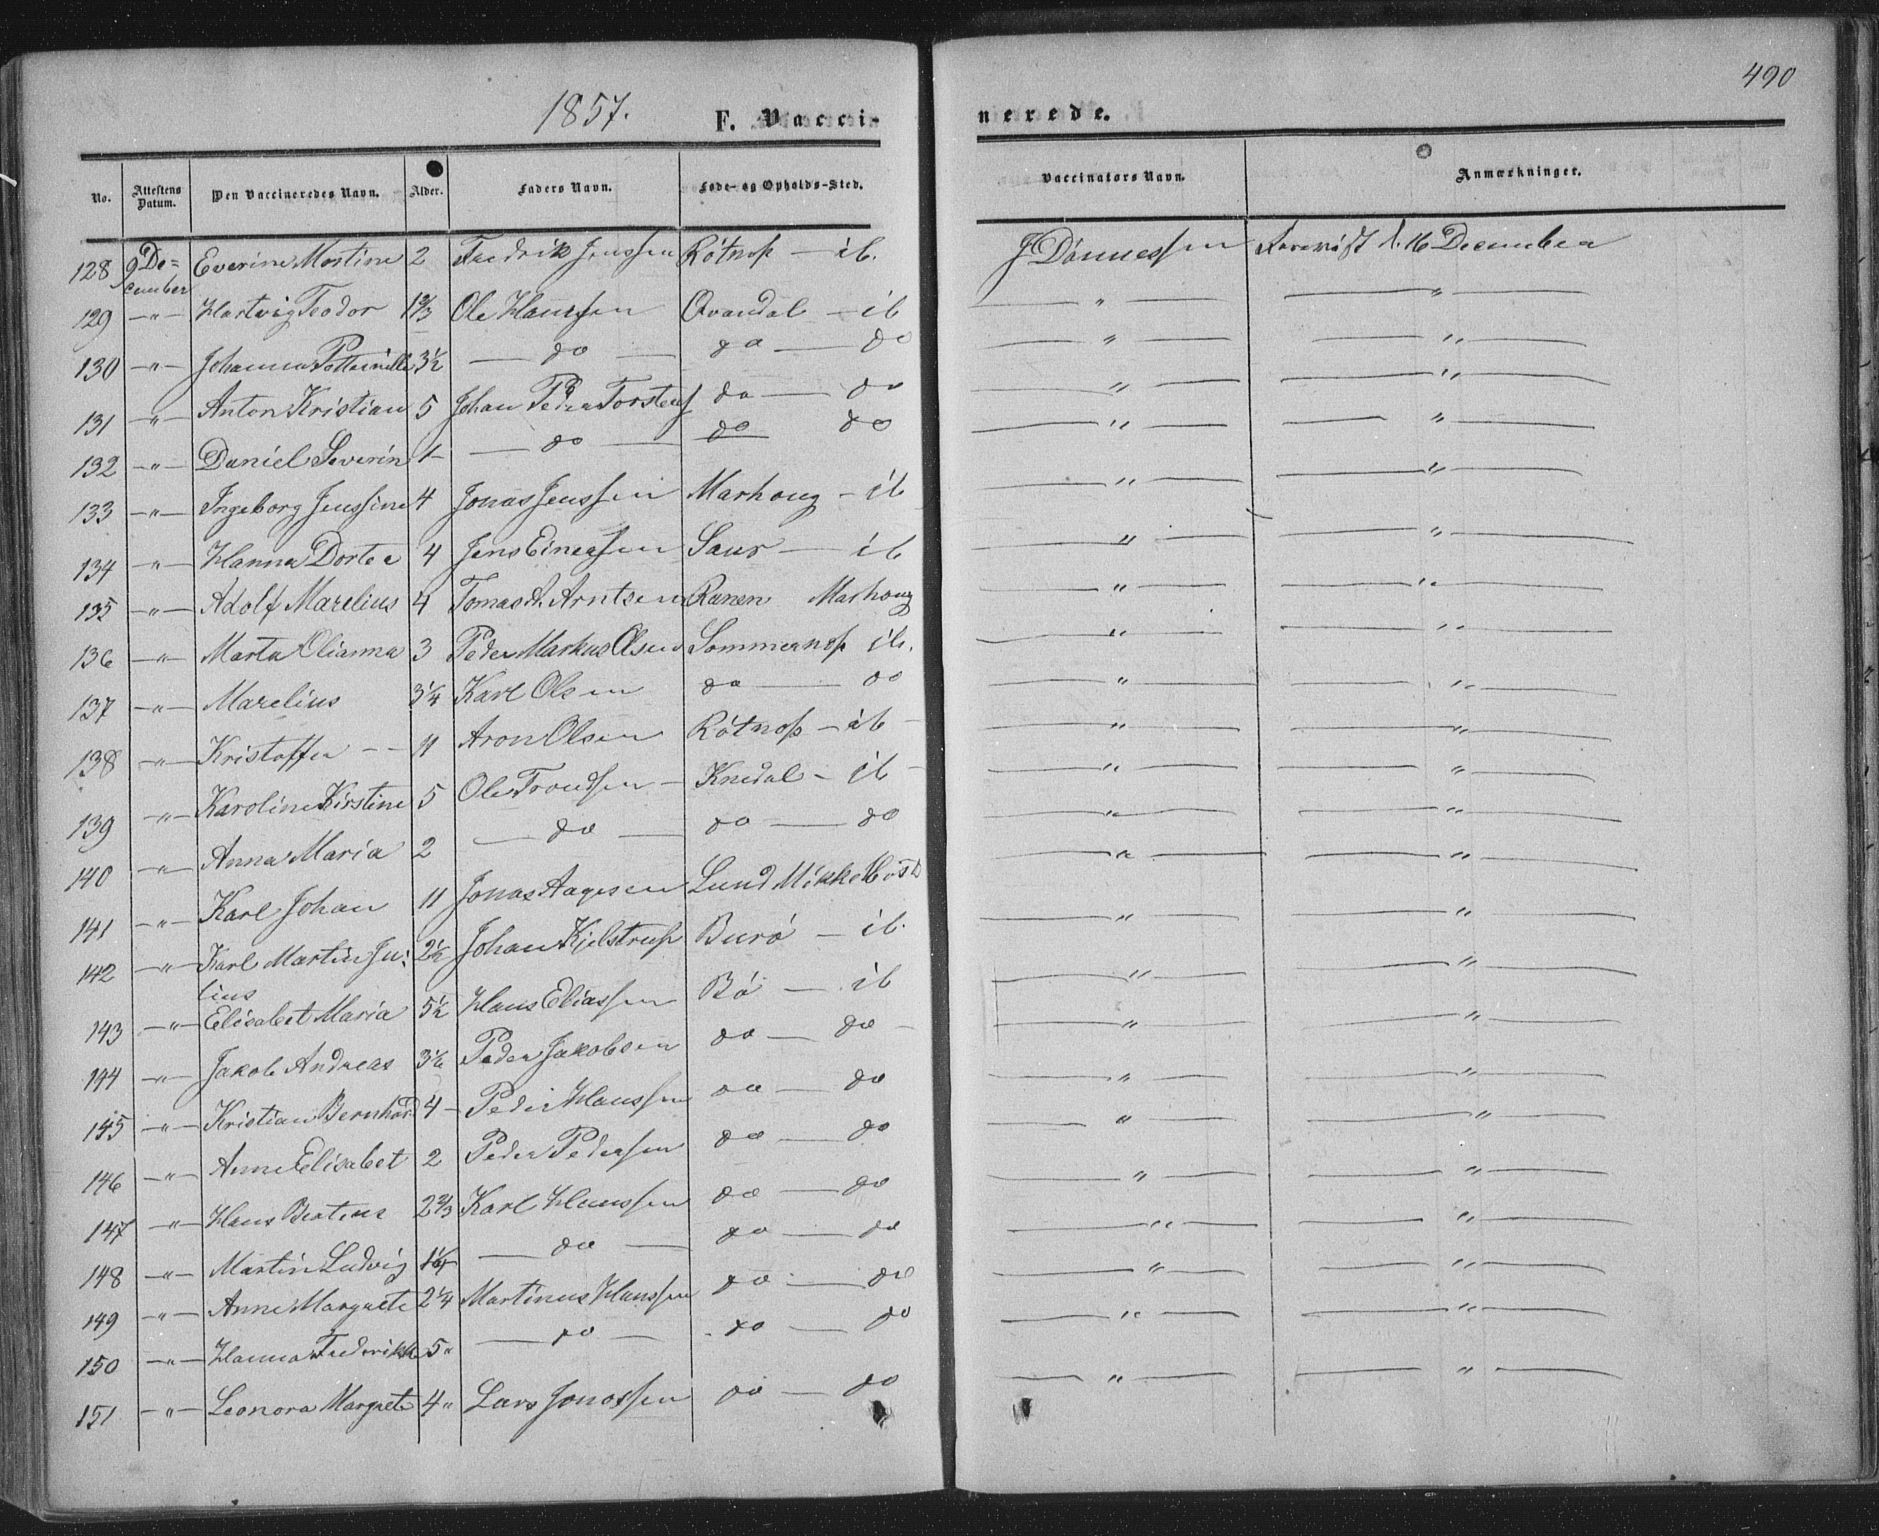 490
1857.
F. Vacci-
nerede.
No. Attestens Datum. Den Vaccineredes Navn. Alder. Faders Navn. Føde- og Opholds-Sted. Vaccinators Navn. Anmærkninger.
128 9 De=cember Everine Mostine 2 Fredrik Jenssen Røtnæs — ib. J Dønnessen 16 December
129 —"— Hartvig Teodor 1 2/3 Ole Hanssen Qvandal — ib —"— —"—
130 —"— Johanna 3½ — do — do — do —"— —"—
131 —"— Anton Kristian 5 Johan Peder Torstens do — do —"— —"—
132 —"— Daniel Severin 1— — do — do do —"— —"—
133 —"— Ingeborg Jenssine 4 Jonas Jenssen Marhoug — ib —"— —"—
134 —"— Hanna Dortea 4 Jens Einersen Saur — ib —"— —"—
135 —"— Adolf Marelius 4 Tomas A. Arntsen Ranen Marhoug —"— —"—
136 —"— Marta Olianna 3 Peder Markus Olsen Sommernæs ib. —"— —"—
137 —"— Marelius 3¼ Karl Olsen do — do —"— —"—
138 —"— Kristoffer -- 11 Aron Olsen Røtnæs — ib — —"— —"—
139 —"— Karoline Kirstine 5 Ole Trondsen — Knedal — ib — —"— —"—
140 —"— Anna Maria 2 — do — do — do —"— —"—
141 —"— Karl Johan 11 Jonas Aagesen Lund —"— —"—
142 —"— Karl Martin Ju: 2½ Johan Kjelstrup Burø — ib. —"— —"—
lius
143 —"— Elisabet Maria 5½ Hans Eliassen Bø — ib —"— —"—
144 —"— Jakob Andreas Peder Jakobsen do — do — —"— —"—
145 —"— Kristian Bernhard 4 — Peder Hanssen do — do —"— —"—
146 —"— Anne Elisabet 2 Peder Pedersen do — do —"— —"—
147 —"— Hans Berteus 2 2/3 Karl Hanssen do — do —"— —"—
148 —"— Martin Ludvig 1¼ — do — do — do —"— —"—
149 —"— Anne Margrete 2¼ Martinus Hanssen do — do —"— —"—
150 —"— Hanna Frederikke 5" — do — do — do —"— —"—
151 —"— Leonora Margrete 4" Lars Jonassen do — do —"— —"—